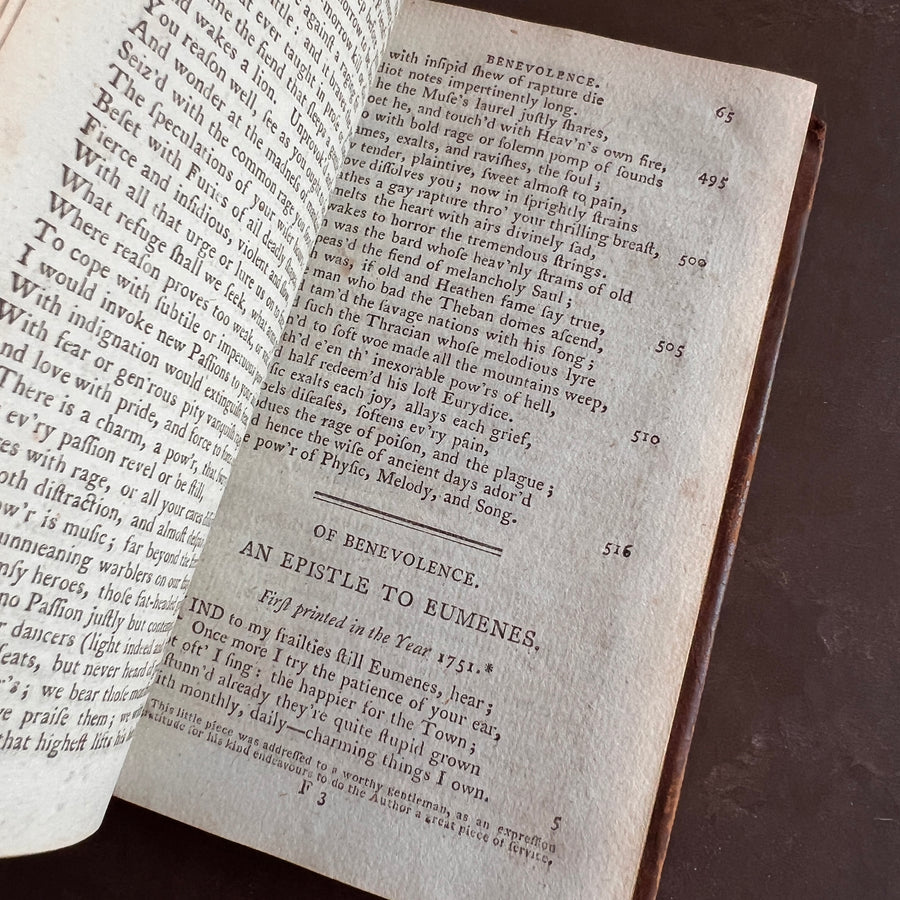 morrow
against
ttle: and it rages
at ever taught.
ne the fiend that sleeps a
nd wakes, a lion.
You reason well, see as you
And wonder at the madness of
Seiz'd with the common rage you
The speculations of your wiser
Beset with Furies of all deadly
Fierce and insidious, violent and
With all that urge or lure us on to
What refuge shall we seek, what
Where reason proves too weak, or
To cope with subtile or impetuous
I would invoke new Passions to your
With indignation would extinguish
With fear or gen'rous pity vanquish
nd love with pride, and force to
There is a charm, a pow'r, that
ev'ry passion revel or be still,
es with rage, or all your cares
oth distraction, and almost
ow'r is music; far beyond the
unmeaning warblers on our
nsy heroes, those fat-headed
no Passion justly but
r dancers (light indeed and
feats, but never heard of
's; we bear those
ve praise them; we
that highest lifts his
BENEVOLENCE. 65
with insipid ſhew of rapture die
diot notes impertinently long.
he the Muſe's laurel juſtly ſhares,
oet he, and touch'd with Heav'n's own fire, 495
o with bold rage or ſolemn pomp of ſounds
mes, exalts, and raviſhes, the ſoul;
tender, plaintive, ſweet almoſt to pain,
ove diſſolves you; now in ſprightly ſtrains
athes a gay rapture thro' your thrilling breaſt, 500
melts the heart with airs divinely ſad,
wakes to horror the tremendous ſtrings.
was the bard whoſe heav'nly ſtrains of old
peas'd the fiend of melancholy Saul;
was, if old and Heathen fame ſay true, 505
man who bad the Theban domes aſcend,
tam'd the ſavage nations with his ſong;
d ſuch the Thracian whoſe melodious lyre
'd to ſoft woe made all the mountains weep,
th'd e'en th' inexorable pow'rs of hell, 510
half redeem'd his loſt Eurydice.
ſic exalts each joy, allays each grief,
pels diſeaſes, ſoftens ev'ry pain,
dues the rage of poiſon, and the plague;
d hence the wiſe of ancient days ador'd
pow'r of Phyſic, Melody, and Song. 516
OF BENEVOLENCE.
AN EPISTLE TO EUMENES.
Firſt printed in the Year 1751.*
IND to my frailties ſtill Eumenes, hear;
Once more I try the patience of your ear,
ot oft' I ſing: the happier for the Town;
ſtunn'd already they're quite ſtupid grown
with monthly, daily—charming things I own. 5
This little piece was addreſſed to a worthy gentleman, as an expreſſion
atitude for his kind endeavours to do the Author a great piece of ſervice,
F 3